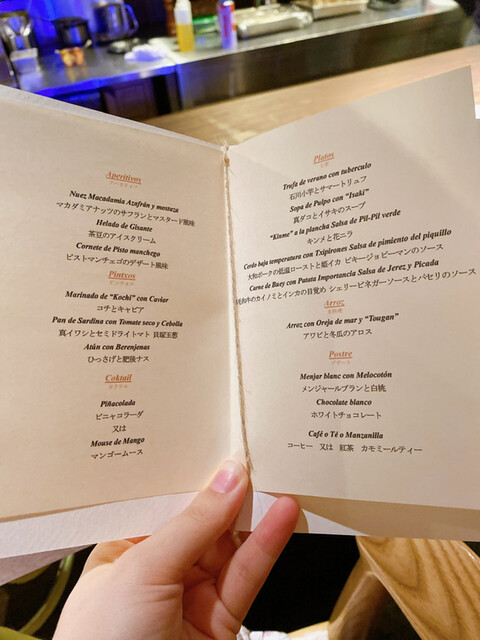 Aperitivos
Nuez Macadamia Azafrán y mostaza
マカダミアナッツのサフランとマスタード風味
Helado de Gisante
茶豆のアイスクリーム
Cornete de Pisto manchego
ピストマンチェゴのデザート風味
Pintxos
Marinado de "Kochi" con Caviar
コチとキャビア
Pan de Sardina con Tomate seco y Cebolla
真イワシとセミドライトマト 貝塚玉葱
Atún con Berenjenas
ひっさげと肥後ナス
Coktail
カクテル
Piñacolada
ピニャコラーダ
又は
Mouse de Mango
マンゴームース
Platos
Trufa de verano con tuberculo
石川小芋とサマートリュフ
Sopa de Pulpo con "Isaki"
真ダコとイサキのスープ
"Kinme" a la plancha Salsa de Pil-Pil verde
キンメと花ニラ
Cerdo baja temperatura con Txipirones Salsa de pimiento del piquillo
大和ポークの低温ローストと姫イカ ピキージョピーマンのソース
Carne de Buey con Patata Importancia Salsa de Jerez y Picada
和牛のカイノミとインカの目覚め シェリービネガーソースとパセリのソース
Arroz
Arroz con Oreja de mar y "Tougan"
アワビと冬瓜のアロス
Postre
デザート
Menjar blanc con Melocotón
メンジャールブランと白桃
Chocolate blanco
ホワイトチョコレート
Café o Té o Manzanilla
コーヒー 又は 紅茶 カモミールティー